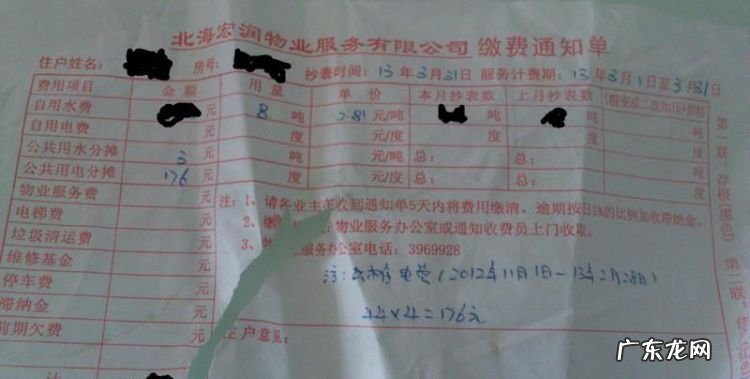 北海宏润物业服务有限公司 缴费通知单
住户姓名: 房号: 抄表时间: 13年3月31日 服务计费期: 13年3月1日至3月31日
费用项目 金额 用量 单价 本月抄表数 上月抄表数
自用水费 元 8 吨 2.81 元/吨 吨 吨
自用电费 元 度 元/度 度 度 度
公共用水分摊 3 元 吨 元/吨 总: 总: 吨
公共用电分摊 176 元 度 元/度 总: 总: 度
物业服务费 元
电梯费 元
垃圾清运费 元
维修基金 元
停车费 元
滞纳金 元
前期欠费 元
计
注: 1、请各业主在收到通知单5天内将费用缴清。逾期按日1%的比例加收滞纳金。
2、 物业服务办公室或通知收费员上门收取。
3、物业服务办公室电话: 3969928
注: 电费(2012年11月1日-13年2月28日)
44×4=176元
住户意见:
第一联: 存根(黑色) 第二联:
广东龙网